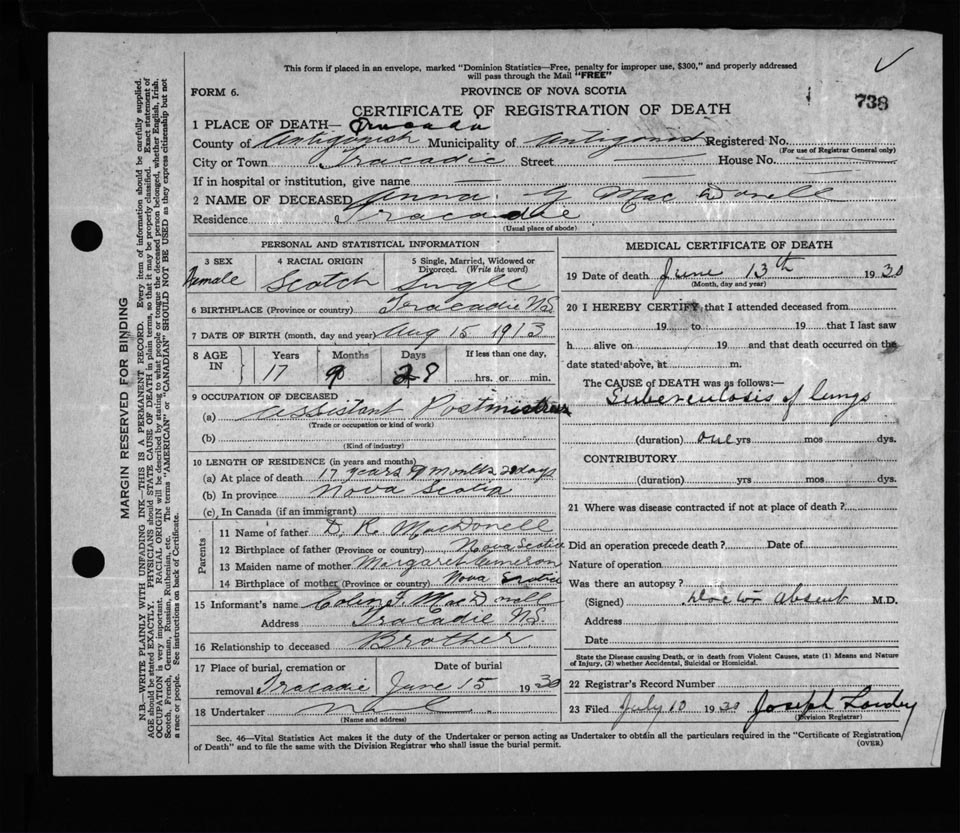 This form if placed in an envelope, marked "Dominion Statistics—Free, penalty for improper use, $300," and properly addressed
will pass through the Mail "FREE"
FORM 6. PROVINCE OF NOVA SCOTIA 738
CERTIFICATE OF REGISTRATION OF DEATH
1 PLACE OF DEATH— Tracadie
County of Antigonish Municipality of Antigonish Registered No.
(For use of Registrar General only)
City or Town Tracadie Street House No.
If in hospital or institution, give name
2 NAME OF DECEASED Anna G MacDonell
Residence Tracadie
(Usual place of abode)
PERSONAL AND STATISTICAL INFORMATION
3 SEX 4 RACIAL ORIGIN 5 Single, Married, Widowed or
Divorced. (Write the word)
Female Scotch Single
6 BIRTHPLACE (Province or country) Tracadie N.S.
7 DATE OF BIRTH (month, day and year) Aug 15 1913
8 AGE IN Years Months Days If less than one day,
17 9 28 hrs. or min.
9 OCCUPATION OF DECEASED
(a) Assistant Postmistress
(Trade or occupation or kind of work)
(b)
(Kind of industry)
10 LENGTH OF RESIDENCE (in years and months)
(a) At place of death 17 years 9 months 28 days
(b) In province Nova Scotia
(c) In Canada (if an immigrant)
Parents
11 Name of father D. R. MacDonell
12 Birthplace of father (Province or country) Nova Scotia
13 Maiden name of mother Margaret Cameron
14 Birthplace of mother (Province or country) Nova Scotia
15 Informant's name Colin F. MacDonell
Address Tracadie N.S.
16 Relationship to deceased Brother
17 Place of burial, cremation or Date of burial
removal Tracadie June 15 1930
18 Undertaker
(Name and address)
MEDICAL CERTIFICATE OF DEATH
19 Date of death June 13th 1930
(Month, day and year)
20 I HEREBY CERTIFY, that I attended deceased from
19 to 19 that I last saw
h alive on 19 and that death occurred on the
date stated above, at m.
The CAUSE OF DEATH was as follows:—
Tuberculosis of lungs
(duration) one yrs mos dys.
CONTRIBUTORY
(duration) yrs mos dys.
21 Where was disease contracted if not at place of death?
Did an operation precede death? Date of
Nature of operation
Was there an autopsy?
(Signed) Doctor Absent M.D.
Address
Date
State the Disease causing Death, or in death from Violent Causes, state (1) Means and Nature
of Injury, (2) whether Accidental, Suicidal or Homicidal.
22 Registrar's Record Number
23 Filed July 10 1930 Joseph
(Division Registrar)
Sec. 46—Vital Statistics Act makes it the duty of the Undertaker or person acting as Undertaker to obtain all the particulars required in the "Certificate of Registration
of Death" and to file the same with the Division Registrar who shall issue the burial permit.
(OVER)
MARGIN RESERVED FOR BINDING
N.B.—WRITE PLAINLY WITH UNFADING INK—THIS IS A PERMANENT RECORD. Every item of information should be carefully supplied.
AGE should be stated EXACTLY. PHYSICIANS should STATE CAUSE OF DEATH in plain terms, so that it may be properly classified. Exact statement of
OCCUPATION is very important. RACIAL ORIGIN will be described by stating to what people or tongue the deceased person belonged, whether English, Irish,
Scotch, French, German, Russian, Ruthenian, etc. The terms "AMERICAN" or "CANADIAN" SHOULD NOT BE USED as they express citizenship but not
a race or people. See instructions on back of Certificate.